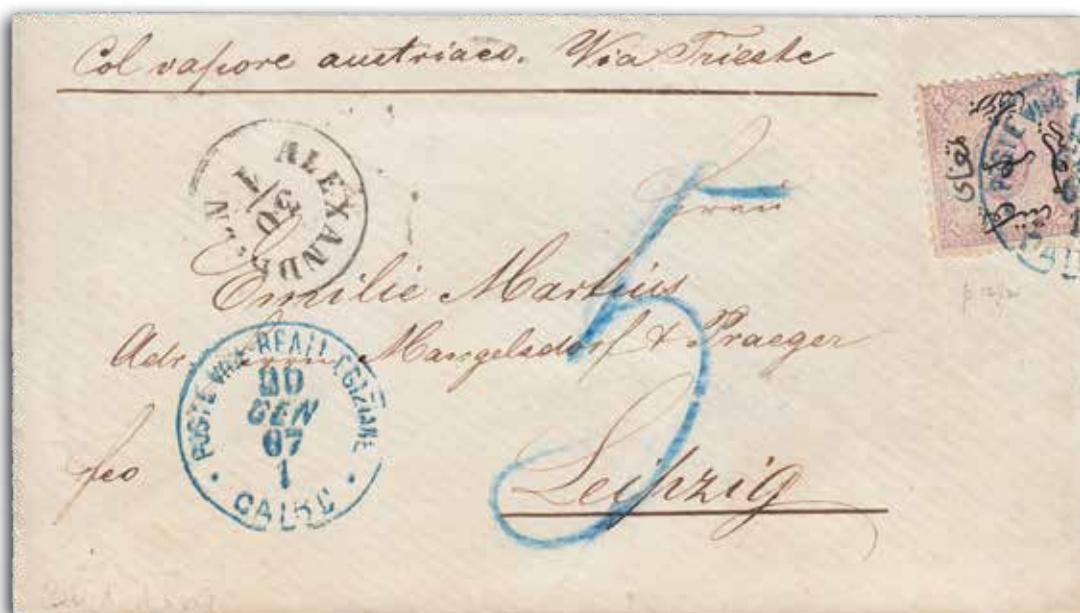 Col vapore austriaco. Via Trieste
ALEXANDRIEN
30
1
5
Frau
Emilie Martius
Adr. Mangelsdorf & Praeger
POSTE VICE REALI EGIZIANE
GEN
67
1
CAIRO
fco
Leipzig
POSTE VICE
CAI
p 12½